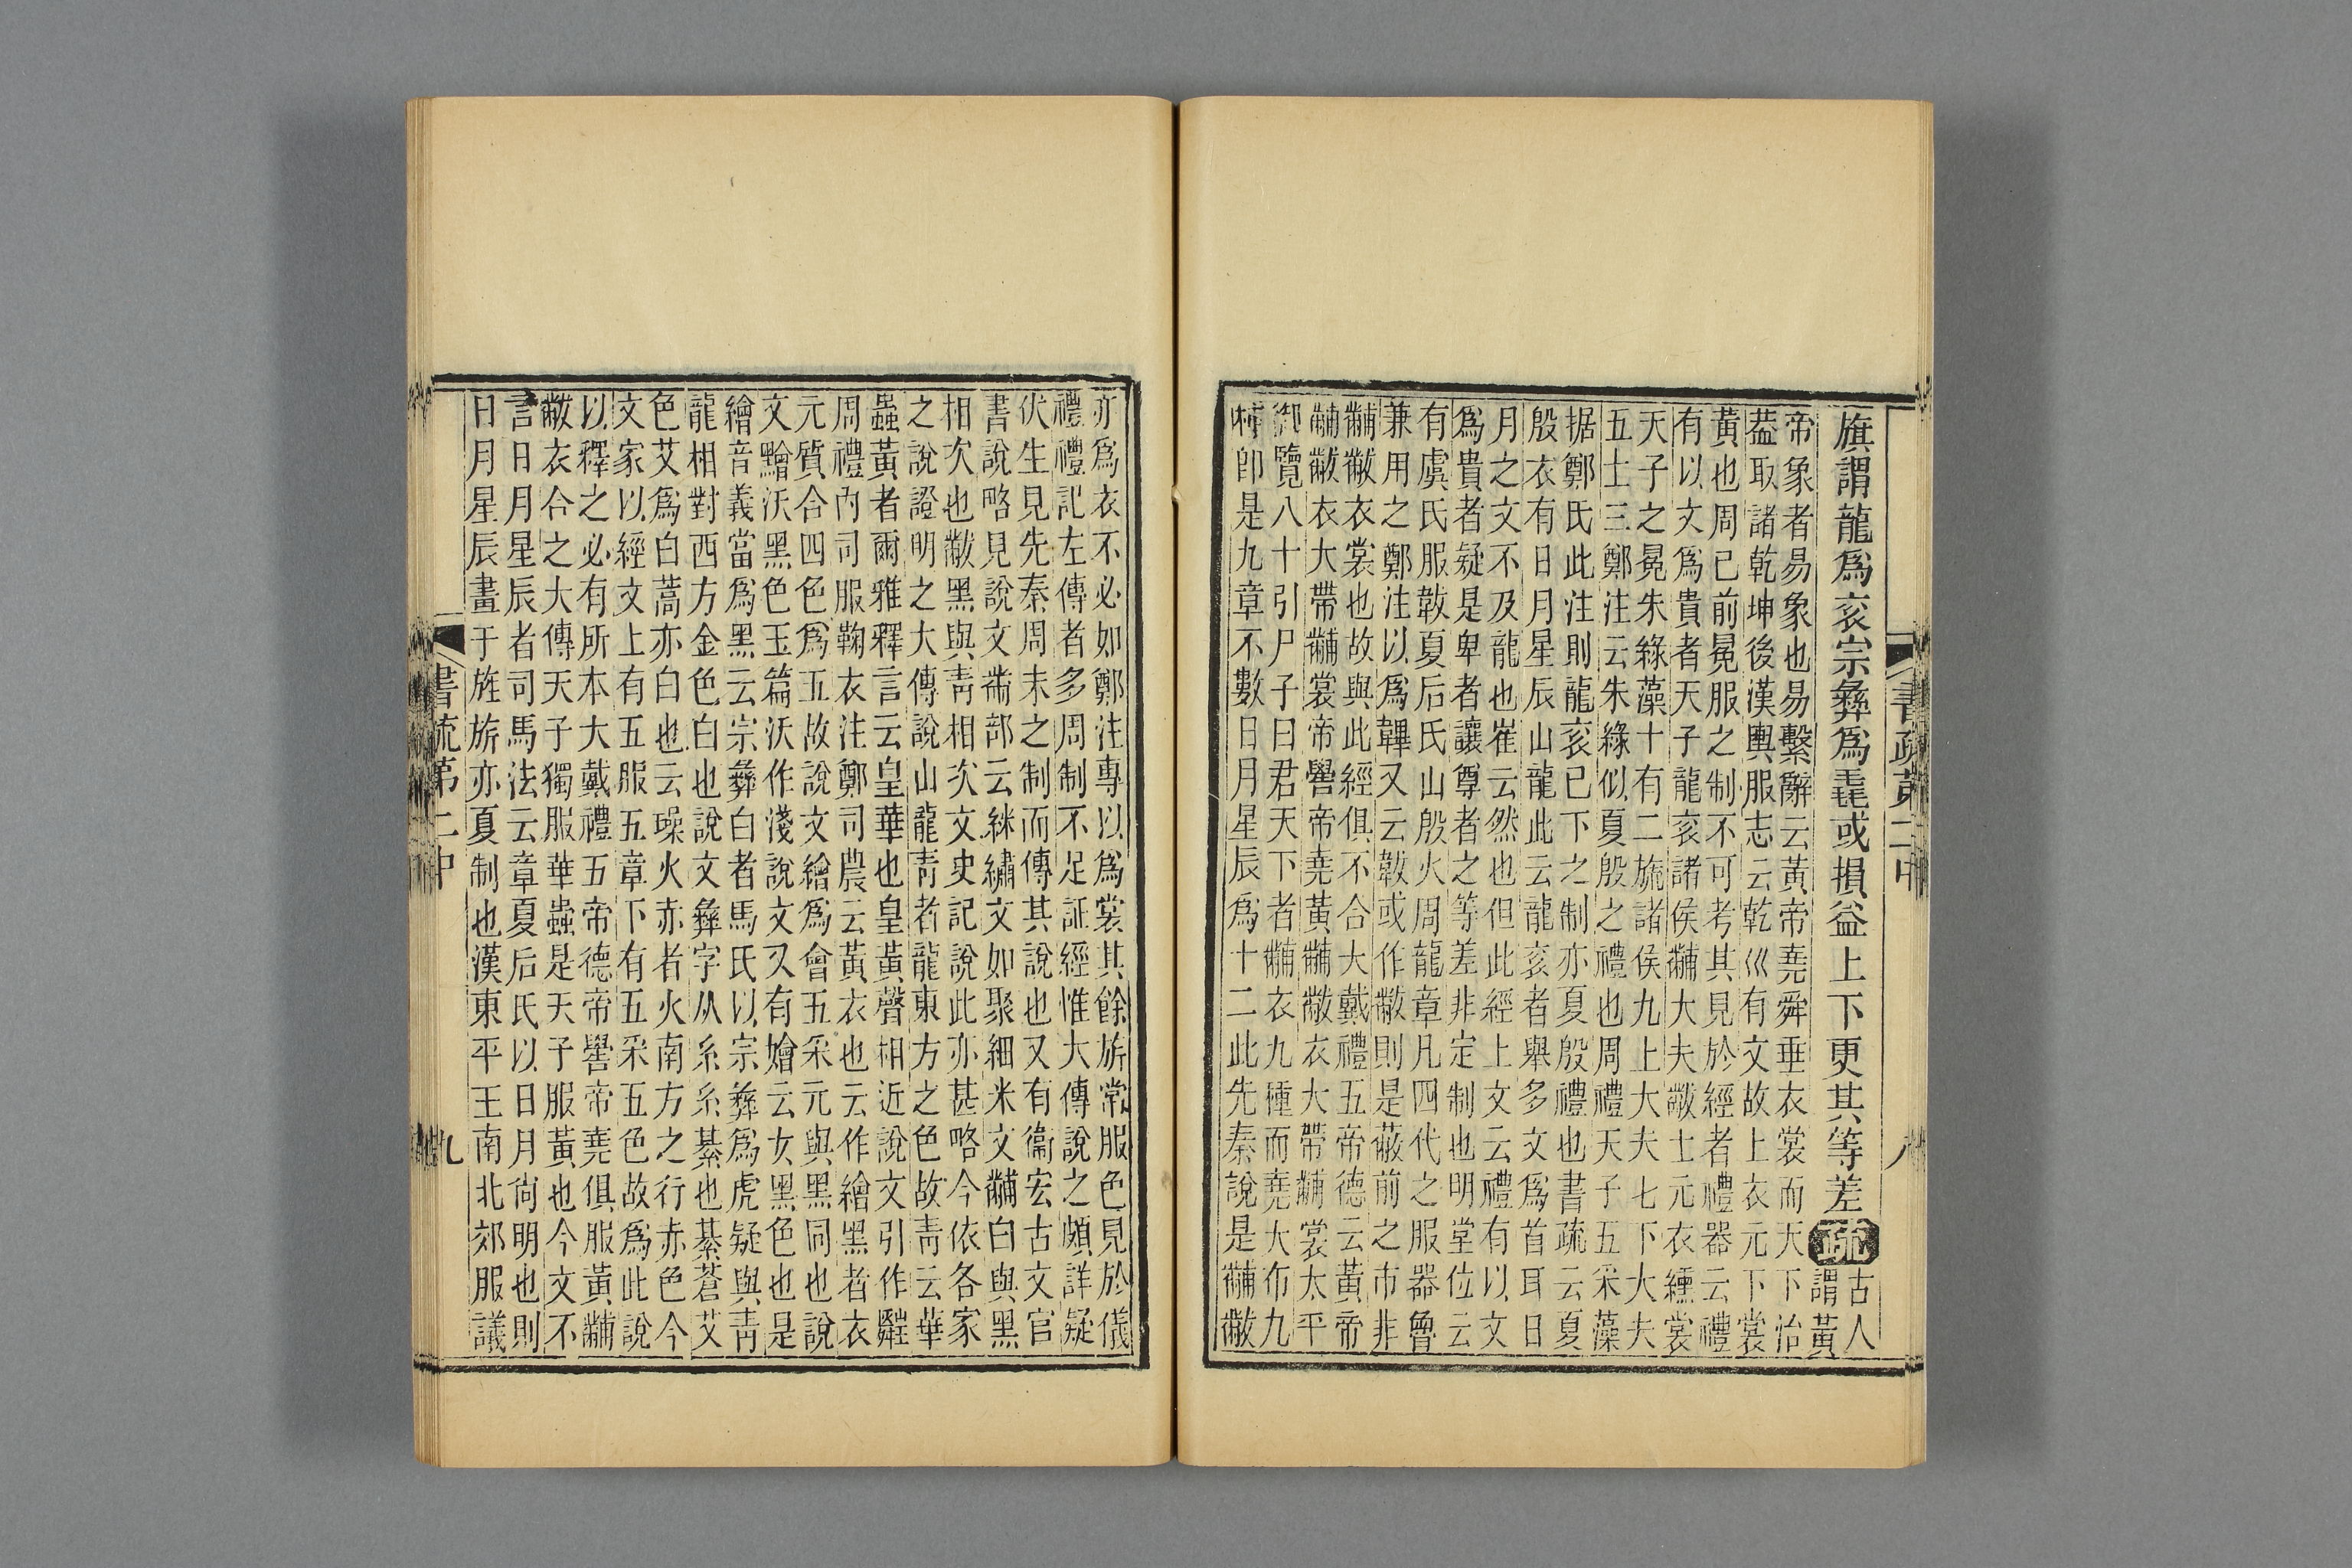 書疏第二中
八
旗謂龍爲衮宗彝爲毳或損益上下更其等差疏古人
謂黃
帝象者易象也易繫辭云黃帝堯舜垂衣裳而天下治
葢取諸乾坤後漢輿服志云乾巛有文故上衣元下裳
黃也周已前冕服之制不可考其見於經者禮器云禮
有以文爲貴者天子龍衮諸侯黼大夫黻士元衣纁裳
天子之冕朱綠藻十有二旒諸侯九上大夫七下大夫
五士三鄭注云朱綠似夏殷之禮也周禮天子五采藻
据鄭氏此注則龍衮已下之制亦夏殷禮也書疏云夏
殷衣有日月星辰山龍此云龍衮者舉多文爲首耳日
月之文不及龍也崔云然也但此經上文云禮有以文
爲貴者疑是卑者讓尊者之等差非定制也明堂位云
有虞氏服韍夏后氏山殷火周龍章凡四代之服器魯
兼用之鄭注以爲韠又云韍或作黻則是蔽前之巿非
黼黻衣裳也故與此經俱不合大戴禮五帝德云黃帝
黼黻衣大帶黼裳帝嚳帝堯黃黼黻衣大帶黼裳太平
御覽八十引尸子曰君天下者黼衣九種而堯大布九
種卽是九章不數日月星辰爲十二此先秦說是黼黻
亦爲衣不必如鄭注專以爲裳其餘旂常服色見於儀
禮禮記左傳者多周制不足証經惟大傳說之頗詳疑
伏生見先秦周末之制而傳其說也又有衞宏古文官
書說略見說文黹部云絑繡文如聚細米文黼白與黑
相次也黻黑與靑相次文史記說此亦甚略今依各家
之說證明之大傳說山龍靑者龍東方之色故靑云華
蟲黃者爾雅釋言云皇華也皇黃聲相近說文引作䑞
周禮內司服鞠衣注鄭司農云黃衣也云作繪黑者衣
元質合四色爲五故說文繪爲會五采元與黑同也說
文黵沃黑色玉篇沃作淺說文又有嬒云女黑色也是
繪音義當爲黑云宗彝白者馬氏以宗彝爲虎疑與靑
龍相對西方金色白也說文彝字从糸糸綦也綦蒼艾
色艾爲白蒿亦白也云璪火赤者火南方之行赤色今
文家以經文上有五服五章下有五采五色故爲此說
以釋之必有所本大戴禮五帝德帝嚳帝堯俱服黃黼
黻衣合之大傳天子獨服華蟲是天子服黃也今文不
言日月星辰者司馬法云章夏后氏以日月尙明也則
日月星辰畫于旌旂亦夏制也漢東平王南北郊服議
書疏第二中
九